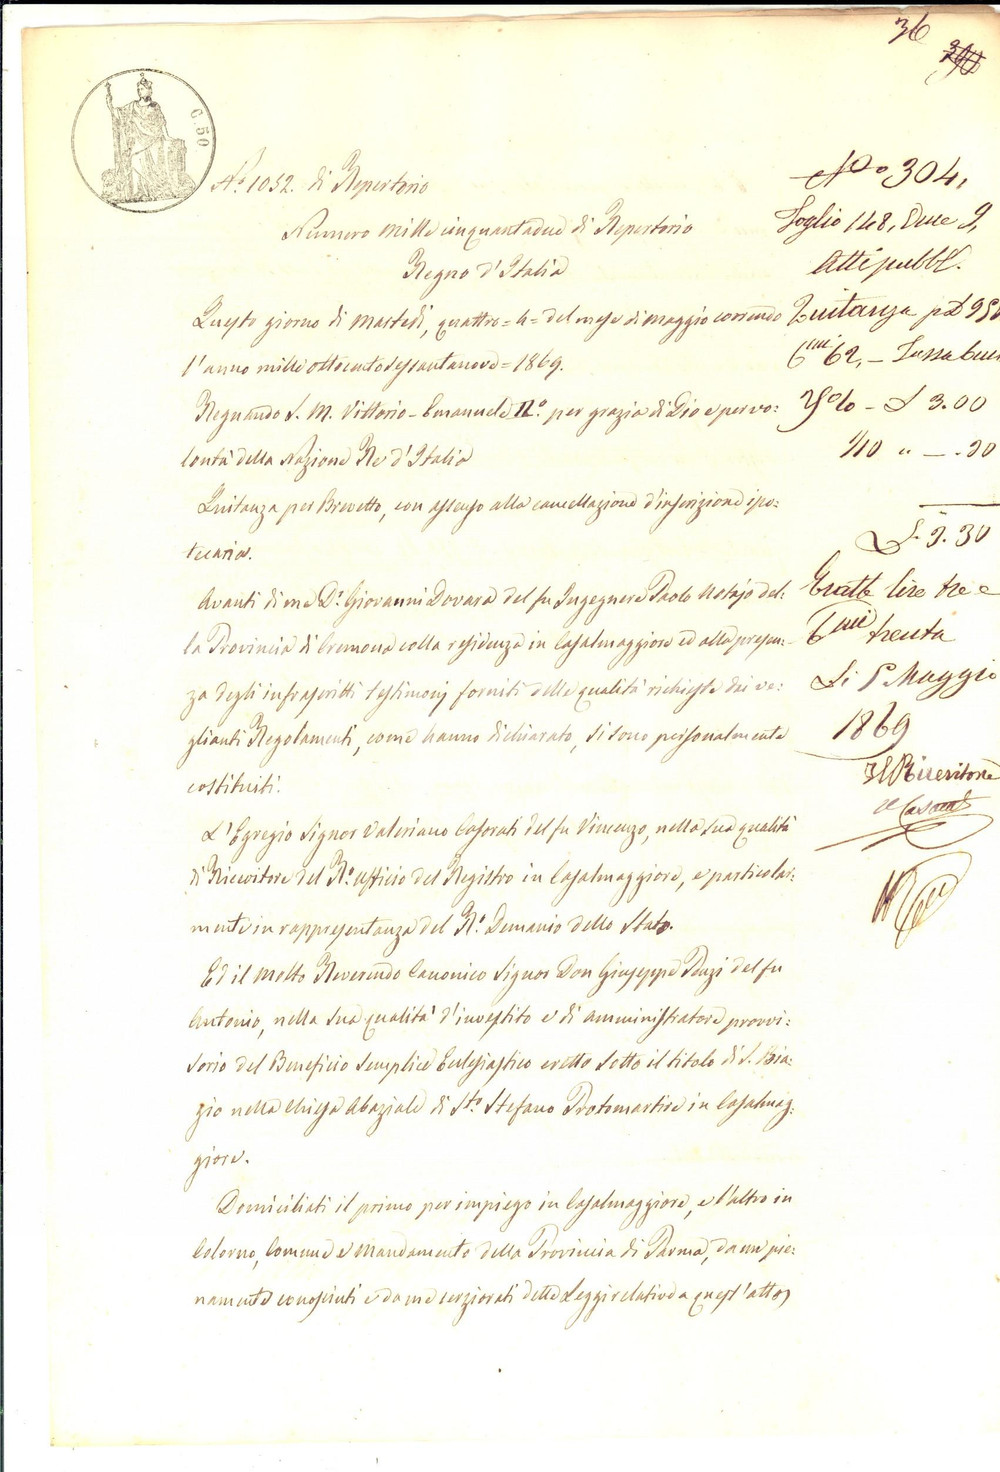 36
C. 50
N.° 1052. di Repertorio
Numero mille cinquantadue di Repertorio
Regno d'Italia
Questo giorno di Martedì, quattro = 4 = del mese di maggio correndo
l'anno mille ottocento sessantanove = 1869.
Regnando S. M. Vittorio-Emanuele II.° per grazia di Dio e per vo:
lontà della Nazione Re d'Italia
Quitanza per Brevetto, con assenso alla cancellazione d'inscrizione ipo:
tecaria.
Avanti di me D.r Giovanni Dovara del fu Ingegnere Paolo Notajo del:
la Provincia di Cremona colla residenza in Casalmaggiore ed alla presen:
za degli infrascritti testimonj forniti delle qualità richieste dai ve:
glianti Regolamenti, come hanno dichiarato, si sono personalmente
costituiti.
L'Egregio Signor Valeriano Casorati del fu Vincenzo, nella sua qualità
di Ricevitore del R.° ufficio del Registro in Casalmaggiore, e particolar:
mente in rappresentanza del R.° Demanio dello Stato.
Ed il Molto Reverendo Canonico Signor Don Giuseppe Penzi del fu
Antonio, nella sua qualità d'investito e di amministratore provvi:
sorio del Beneficio Semplice Ecclesiastico eretto sotto il titolo di S. Bia:
gio nella Chiesa Abaziale di S.to Stefano Protomartire in Casalmag:
giore.
Domiciliati il primo per impiego in Casalmaggiore, e l'altro in
Colorno, Comune e Mandamento della Provincia di Parma, da me pie:
namente conosciuti e da me cerziorati delle Leggi relative a quest'atto,
N.° 304,
Foglio 148, 9,
Atti pubbl.
Quitanza p £ 950
C.mi 62, – Tassa
% – £ 3.00
1/10 " – .30
£ 3.30
Esatte lire tre e
C.mi trenta
Li 5 Maggio
1869
Il Ricevitore
Casorati